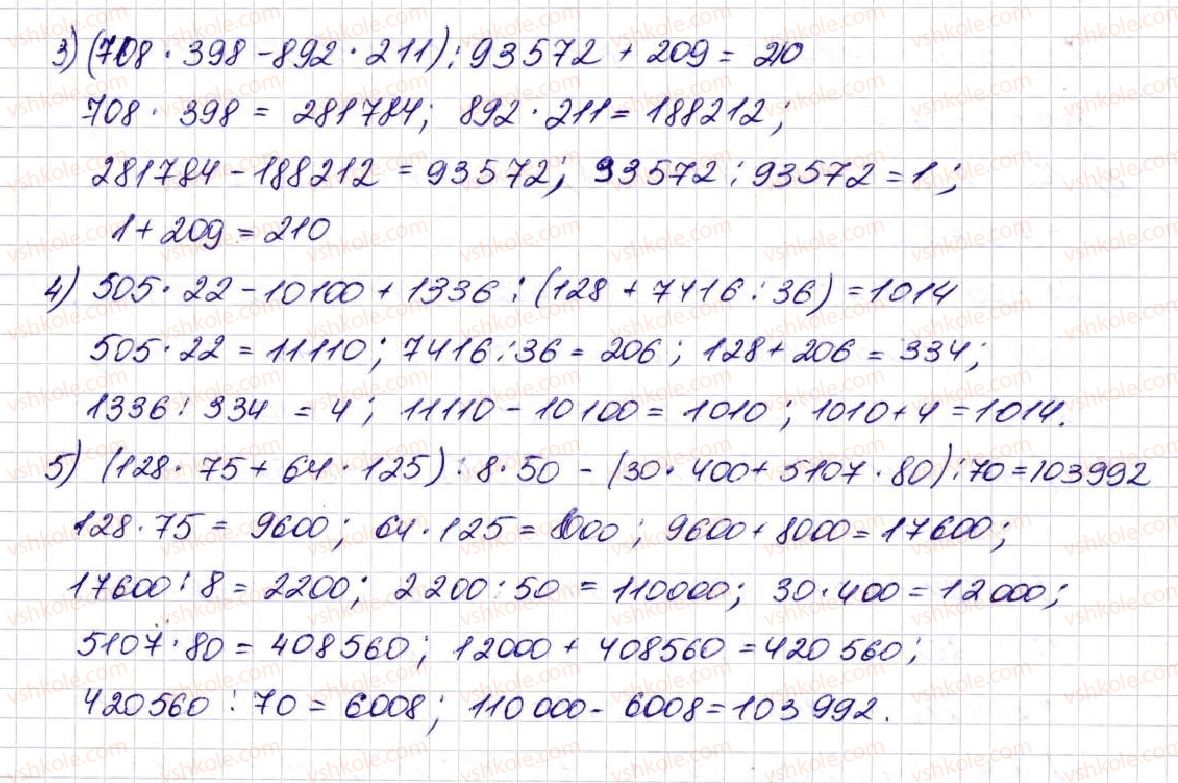 3) (708 · 398 - 892 · 211) : 93572 + 209 = 210
708 · 398 = 281784; 892 · 211 = 188212;
281784 - 188212 = 93572; 93572 : 93572 = 1;
1 + 209 = 210
4) 505 · 22 - 10100 + 1336 : (128 + 7416 : 36) = 1014
505 · 22 = 11110; 7416 : 36 = 206; 128 + 206 = 334;
1336 : 334 = 4; 11110 - 10100 = 1010; 1010 + 4 = 1014.
5) (128 · 75 + 64 · 125) : 8 · 50 - (30 · 400 + 5107 · 80) : 70 = 103992
128 · 75 = 9600; 64 · 125 = 8000; 9600 + 8000 = 17600;
17600 : 8 = 2200; 2200 : 50 = 110000; 30 · 400 = 12000;
5107 · 80 = 408560; 12000 + 408560 = 420560;
420560 : 70 = 6008; 110000 - 6008 = 103992.
vshkole.com